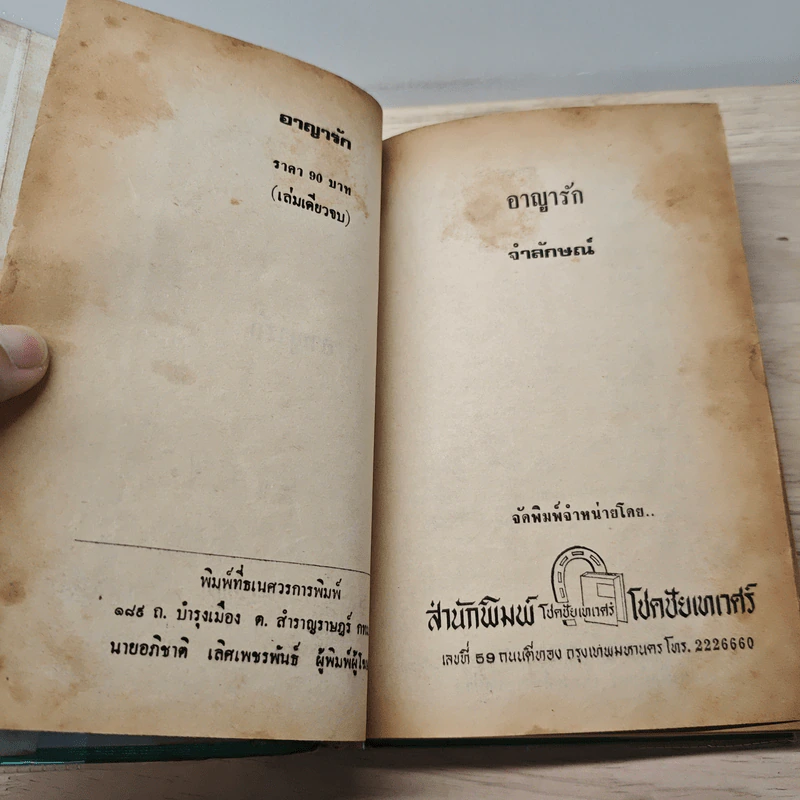 อาญารัก
ราคา 90 บาท
(เล่มเดียวจบ)
พิมพ์ที่ธเนศวรการพิมพ์
๑๘๙ ถ. บำรุงเมือง ต. สำราญราษฎร์
นายอภิชาติ เลิศเพชรพันธ์
อาญารัก
จำลักษณ์
จัดพิมพ์จำหน่ายโดย..
สำนักพิมพ์ โชคชัยเทเวศร์ โชคชัยเทเวศร์
เลขที่ 59 ถนนตีทอง กรุงเทพมหานคร โทร. 2226660